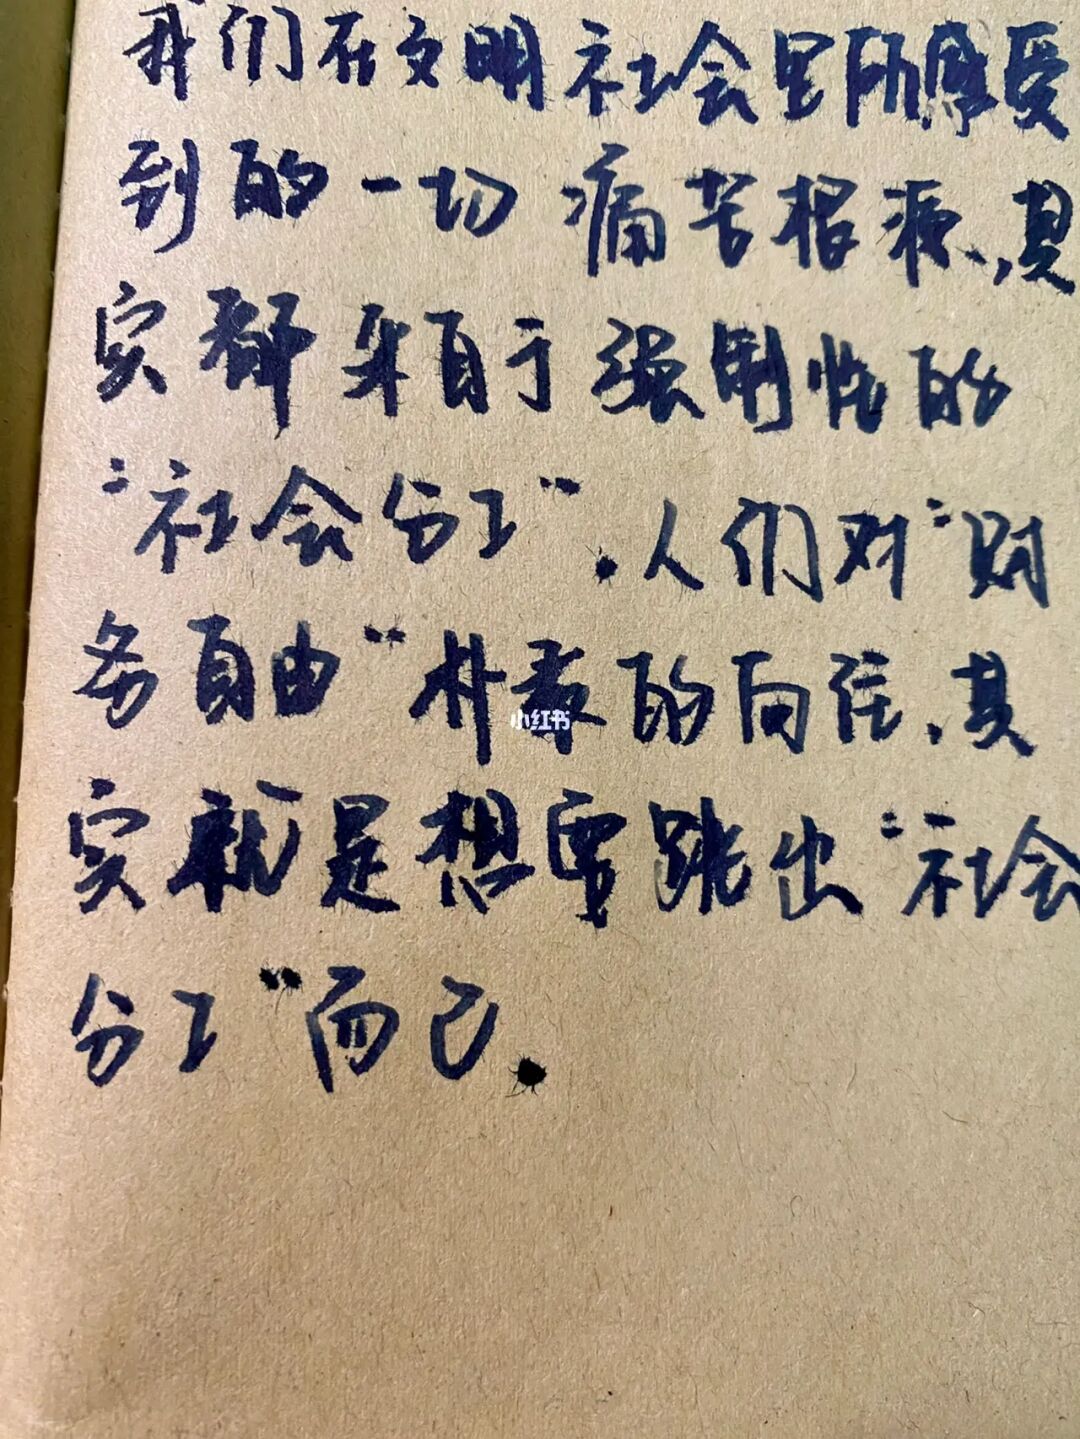 我们在文明社会里所感受
到的一切痛苦根源,其
实都来自于强制性的
“社会分工”.人们对“财
务自由”朴素的向往,其
小红书
实就是想要跳出“社会
分工”而已.